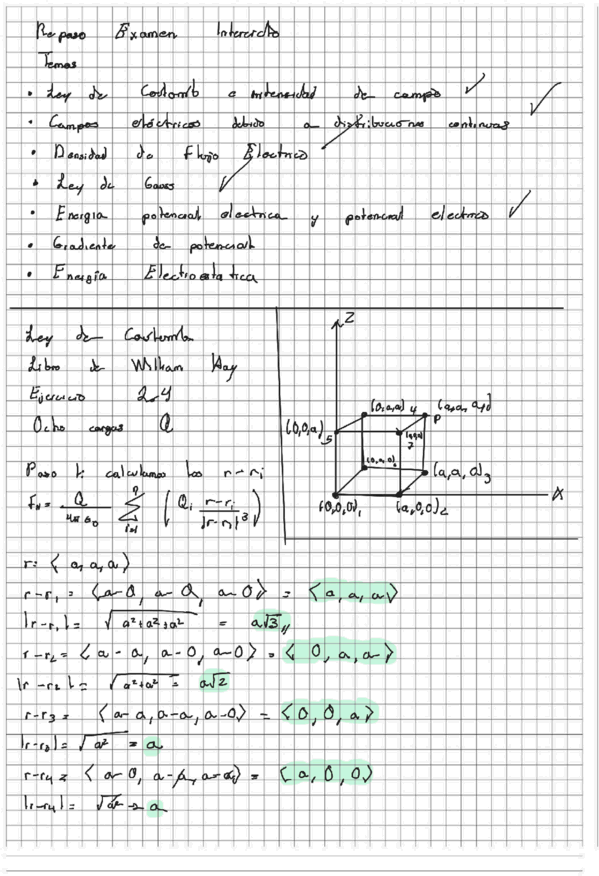 Repaso Examen Interciclo
Temas
• Ley de Coulomb e intensidad de campo ✓
• Campos eléctricos debido a distribuciones continuas ✓
• Densidad de Flujo Electrico ✓
• Ley de Gauss ✓
• Energia potencial electrica y potencial electrico ✓
• Gradiente de potencial
• Energia Electrostatica
Ley de Coulomb
Libro de William Hay
Ejercicio 2.4
Ocho cargas Q
Paso 1: calculamos los r-ri
Fn = Q/4πε0 Σ i=1 n ( Qi r-ri/|r-ri|³ )
Z
(0,a,a) 4 (a,a,a)
P
(0,0,a) 5
7
(0,0,0)1 (a,0,0)2
(a,a,0)3
X
r= ⟨ a, a, a ⟩
r-r1 = ⟨a-0, a-0, a-0⟩ = ⟨a, a, a⟩
|r-r1| = √a²+a²+a² = a√3 //
r-r2 = ⟨a-a, a-0, a-0⟩ = ⟨0, a, a⟩
|r-r2| = √a²+a² = a√2
r-r3 = ⟨a-a, a-a, a-0⟩ = ⟨0, 0, a⟩
|r-r3| = √a² = a
r-r4 = ⟨a-0, a-a, a-a⟩ = ⟨a, 0, 0⟩
|r-r4| = √a² = a